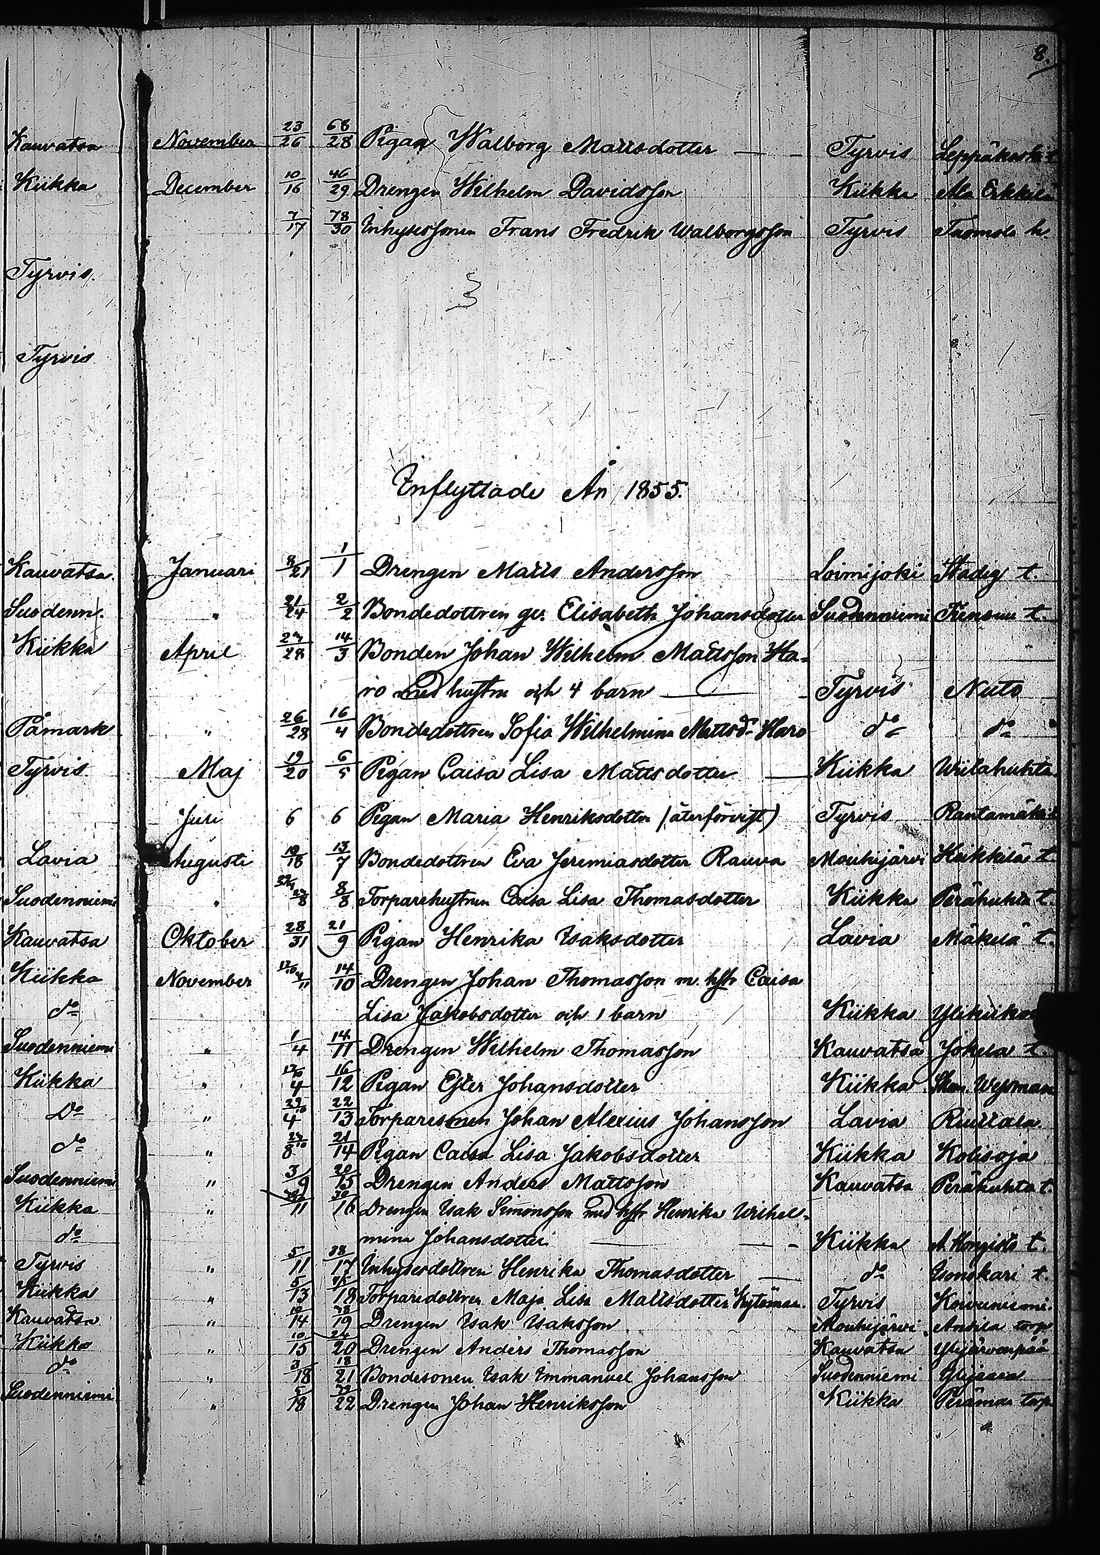 8.
Kauvatsa November 23/26 68/28 Pigan Walborg Mattsdotter Tyrvis Leppäkoski t.
Kiikka December 10/16 46/29 Drengen Wilhelm Davidsson Kiikka Ala Erkkilä
7/17 78/30 Inhysessonen Frans Fredrik Walborgsson Tyrvis Tuomola h
Tyrvis.
Tyrvis
Inflyttade År 1855.
Kauvatsa. Januari 8/21 1/1 Drengen Matts Andersson Loimijoki Stadig t.
Suodenn. " 21/24 2/2 Bondedottren ge. Elisabeth Johansdotter Suodenniemi t.
Kiikka April 23/28 14/3 Bonden Johan Wilhelm Mattsson Ha-
ro med hustru och 4 barn Tyrvis Nuto
Påmark " 26/28 16/4 Bondedottren Sofia Wilhelmina Mattsdr Haro do do
Tyrvis Maj 19/20 6/5 Pigan Caisa Lisa Mattsdotter Kiikka Wiilahuhta
Juli 6 6 Pigan Maria Henriksdotter (återförvist) Tyrvis Rantamäki
Lavia Augusti 10/18 13/7 Bondedottren Eva Jeremiasdotter Rauva Mouhijärvi Heikkilä t.
Suodenniemi " 8/8 Torparehustrun Caisa Lisa Thomasdotter Kiikka Perähuhta t.
Kauvatsa Oktober 28/31 21/9 Pigan Henrika Isaksdotter Lavia Mäkelä t.
Kiikka November 14/10 Drengen Johan Thomasson m. hstr Caisa
do Lisa Jakobsdotter och 1 barn Kiikka Ylikiikka
Suodenniemi " 1/4 14/11 Drengen Wilhelm Thomasson Kauvatsa Jokela t.
Kiikka " 4 16/12 Pigan Ester Johansdotter Kiikka
Do " 4 22/13 Torparesonen Johan Alexius Johansson Lavia
do " 8 21/14 Pigan Caisa Lisa Jakobsdotter Kiikka Kolisoja
Suodenniemi " 3/9 20/15 Drengen Anders Mattsson Kauvatsa Perähuhta t.
Kiikka " 11 30/16 Drengen Isak Simonsson med hstr Henrika Wilhel-
do mina Johansdotter Kiikka A. t.
Tyrvis " 5/11 38/17 Inhysesdottren Henrika Thomasdotter do Isonokari t.
Kiikka " 5/13 45/18 Torparedottren Maja Lisa Mattsdotter Kytömaa. Tyrvis Koivuniemi.
Kauvatsa " 10/14 78/19 Drengen Isak Isaksson Mouhijärvi Anttila torp
Kiikka " 10/15 24/20 Drengen Anders Thomasson Kauvatsa Ylijärvenpää
do " 3/18 18/21 Bondesonen Isak Emmanuel Johansson Suodenniemi
Suodenniemi " 5/18 22 Drengen Johan Henriksson Kiikka torp